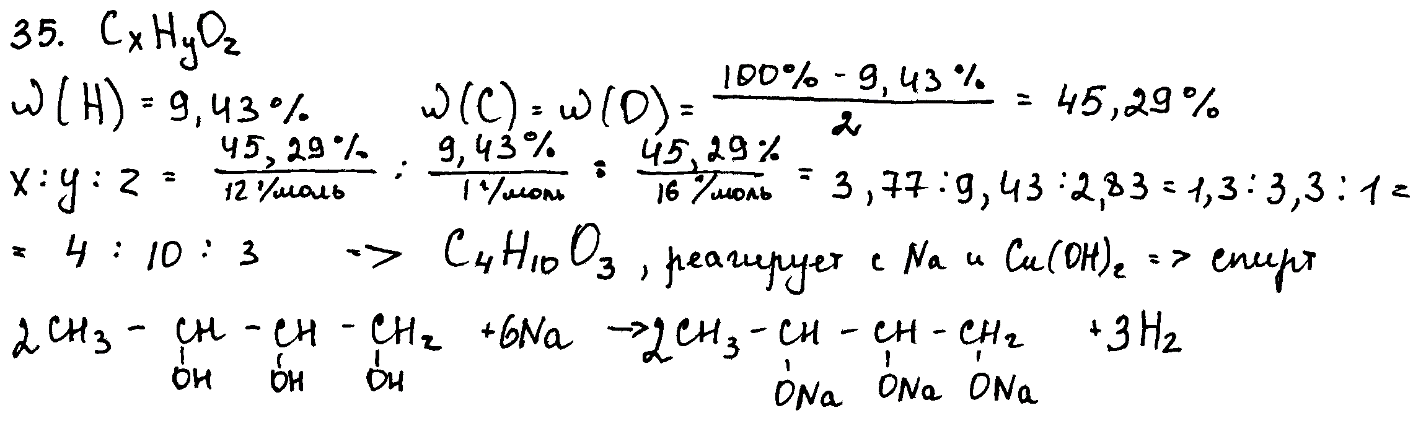 35. CxHyOz
ω(H) = 9,43% ω(C) = ω(O) = (100% - 9,43%)/2 = 45,29%
x : y : z = 45,29%/12 г/моль : 9,43%/1 г/моль : 45,29%/16 г/моль = 3,77 : 9,43 : 2,83 = 1,3 : 3,3 : 1 =
= 4 : 10 : 3 -> C₄H₁₀O₃, реагирует с Na и Cu(OH)₂ => спирт
2CH₃ - CH - CH - CH₂ + 6Na → 2CH₃ - CH - CH - CH₂ + 3H₂
OH OH OH ONa ONa ONa